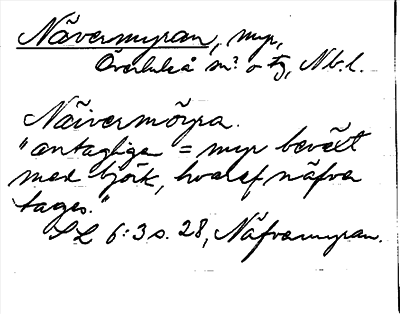 Nävermyran, myr,
Överluleå sn? o tg, Nb. l.
Näivermöyra.
"antagliga = myr bevext
med björk, hvaraf näfva
tages."
SL 6:3 s. 28, Näfvamyran.